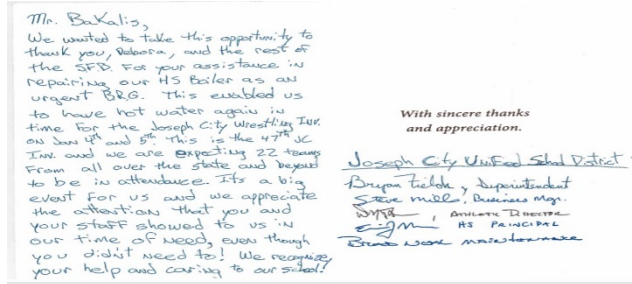 Mr. Bakalis,
We wanted to take this opportunity to
thank you, Debora, and the rest of
the SFB. For your assistance in
repairing our HS Boiler as an
urgent BRG. This enabled us
to have hot water again in
time for the Joseph City Wrestling Inv.
on Jan 4th and 5th. This is the 47th JC
Inv. and we are expecting 22 teams
From all over the state and beyond
to be in attendance. Its a big
event for us and we appreciate
the attention that you and
your staff showed to us in
our time of need, even though
you didn't need to! We recognize
your help and caring to our school!
With sincere thanks
and appreciation.
Joseph City Unified School District
Bryan Fields, Superintendent
Steve Mills, Business Mgr.
, Athletic Director
HS Principal
Maintenance